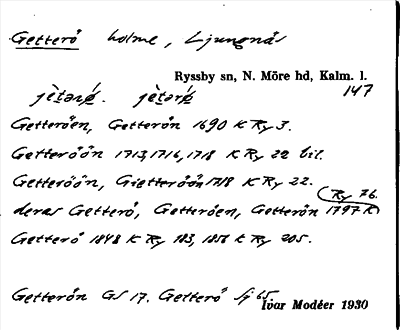 Getterö holme, Ljungnäs
Ryssby sn, N. Möre hd, Kalm. l.
147
Getteröen, Getterön 1690 K Ry 3.
Getteröön 1713, 1716, 1718 K Ry 22 bil.
Getteröön, Gietteröön 1718 K Ry 22.
(Ry 76.
deras Getterö, Getteröen, Getterön 1797 K
Getterö 1848 K Ry 183, 1856 K Ry 205.
Getterön GS 17. Getterö Sj 65.
Ivar Modéer 1930